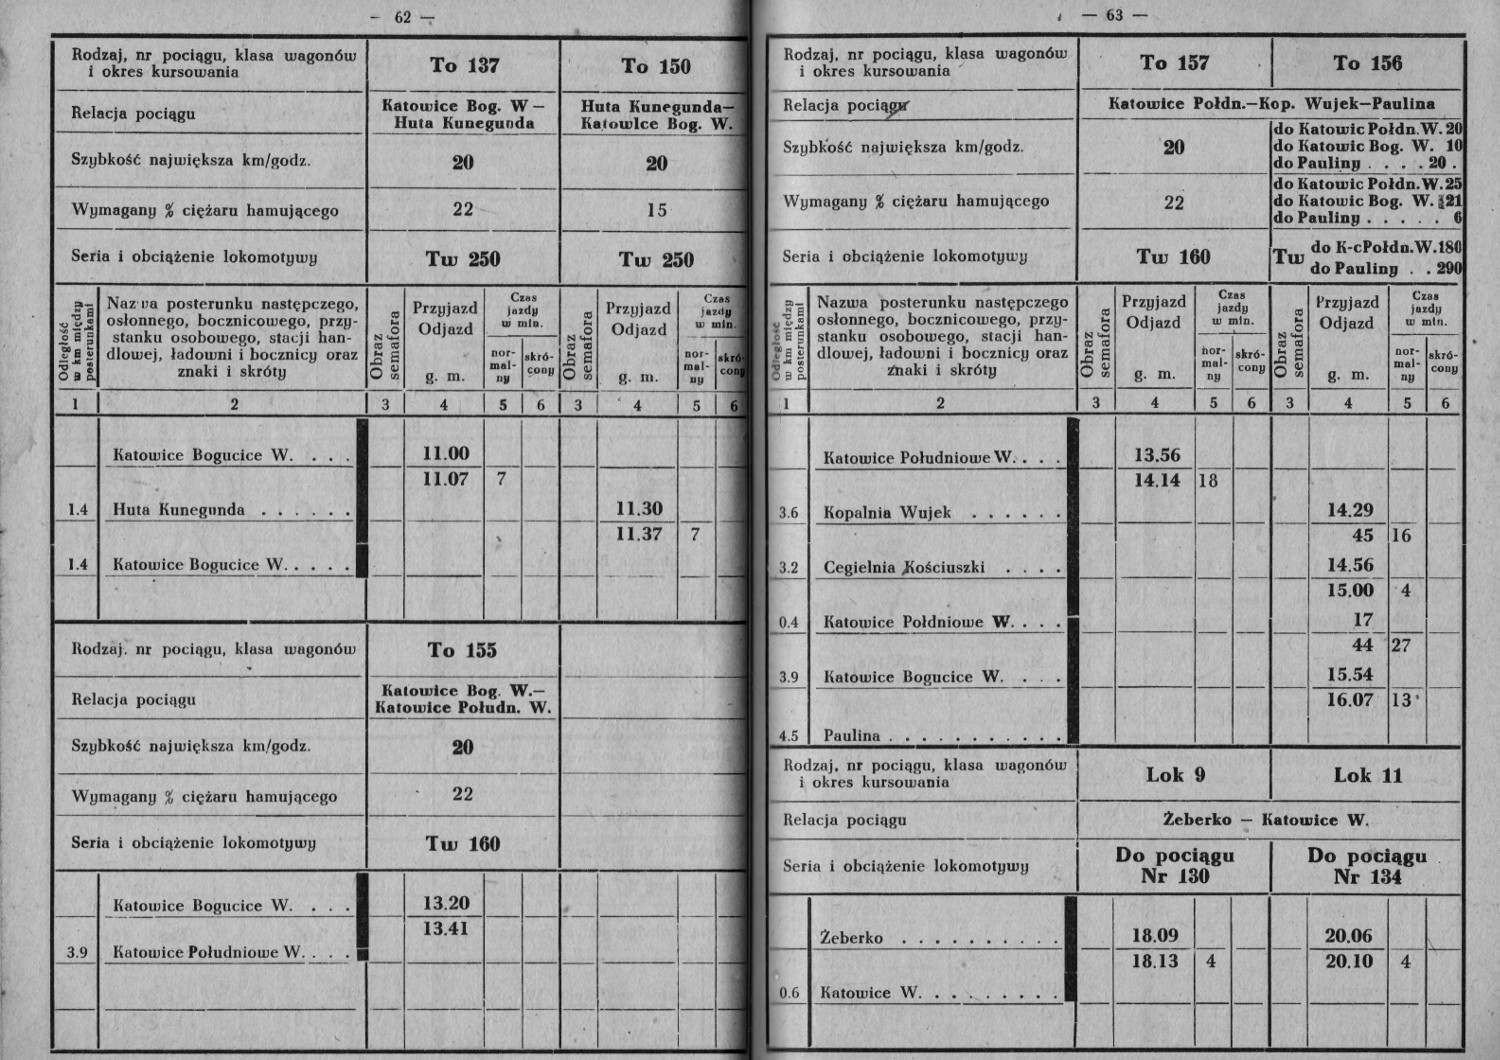 - 62 —
Rodzaj, nr pociągu, klasa wagonów
i okres kursowania
To 137
To 150
Relacja pociągu
Katowice Bog. W —
Huta Kunegunda
Huta Kunegunda—
Katowice Bog. W.
Szybkość największa km/godz.
20
20
Wymagany % ciężaru hamującego
22
15
Seria i obciążenie lokomotywy
Tw 250
Tw 250
Odległość
w km między
posterunkami
Nazwa posterunku następczego,
osłonnego, bocznicowego, przy-
stanku osobowego, stacji han-
dlowej, ładowni i bocznicy oraz
znaki i skróty
Obraz
semafora
Przyjazd
Odjazd
g. m.
Czas
jazdy
w min.
nor-
mal-
ny
skró-
cony
Obraz
semafora
Przyjazd
Odjazd
g. m.
Czas
jazdy
w min.
nor-
mal-
ny
skró-
cony
1 2 3 4 5 6 3 4 5 6
Katowice Bogucice W. . . . 11.00
11.07 7
1.4 Huta Kunegunda . . . . . . 11.30
11.37 7
1.4 Katowice Bogucice W. . . . .
Rodzaj. nr pociągu, klasa wagonów
To 155
Relacja pociągu
Katowice Bog. W.—
Katowice Połudn. W.
Szybkość największa km/godz.
20
Wymagany % ciężaru hamującego
22
Seria i obciążenie lokomotywy
Tw 160
Katowice Bogucice W. . . . 13.20
13.41
3.9 Katowice Południowe W. . . .
— 63 —
Rodzaj, nr pociągu, klasa wagonów
i okres kursowania
To 157
To 156
Relacja pociągu
Katowice Połdn.—Kop. Wujek—Paulina
Szybkość największa km/godz.
20
do Katowic Połdn.W. 20
do Katowic Bog. W. 10
do Pauliny . . . . 20 .
Wymagany % ciężaru hamującego
22
do Katowic Połdn.W. 25
do Katowic Bog. W. 21
do Pauliny . . . . . 6
Seria i obciążenie lokomotywy
Tw 160
Tw
do K-cPołdn.W.180
do Pauliny . . 290
Odległość
w km między
posterunkami
Nazwa posterunku następczego
osłonnego, bocznicowego, przy-
stanku osobowego, stacji han-
dlowej, ładowni i bocznicy oraz
znaki i skróty
Obraz
semafora
Przyjazd
Odjazd
g. m.
Czas
jazdy
w min.
nor-
mal-
ny
skró-
cony
Obraz
semafora
Przyjazd
Odjazd
g. m.
Czas
jazdy
w min.
nor-
mal-
ny
skró-
cony
1 2 3 4 5 6 3 4 5 6
Katowice Południowe W. . . . 13.56
14.14 18
3.6 Kopalnia Wujek . . . . . . 14.29
45 16
3.2 Cegielnia Kościuszki . . . . 14.56
15.00 4
0.4 Katowice Połdniowe W. . . . 17
44 27
3.9 Katowice Bogucice W. . . . 15.54
16.07 13
4.5 Paulina . . . . . . . . . . .
Rodzaj, nr pociągu, klasa wagonów
i okres kursowania
Lok 9
Lok 11
Relacja pociągu
Żeberko — Katowice W.
Seria i obciążenie lokomotywy
Do pociągu
Nr 130
Do pociągu
Nr 134
Żeberko . . . . . . . . . . 18.09 20.06
18.13 4 20.10 4
0.6 Katowice W. . . . . . . . .